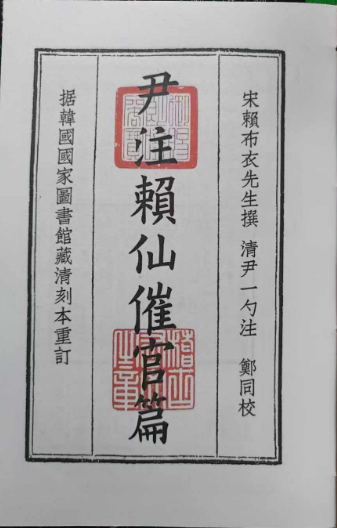 宋賴布衣先生撰 清尹一勺注 鄭同校
尹注賴仙催官篇
据韓國國家圖書館藏清刻本重訂